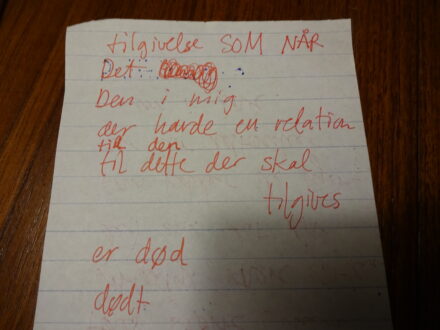 tilgivelse SOM NÅR
Det
Den i mig
der havde en relation
til den
til dette der skal
tilgives
er død
dødt